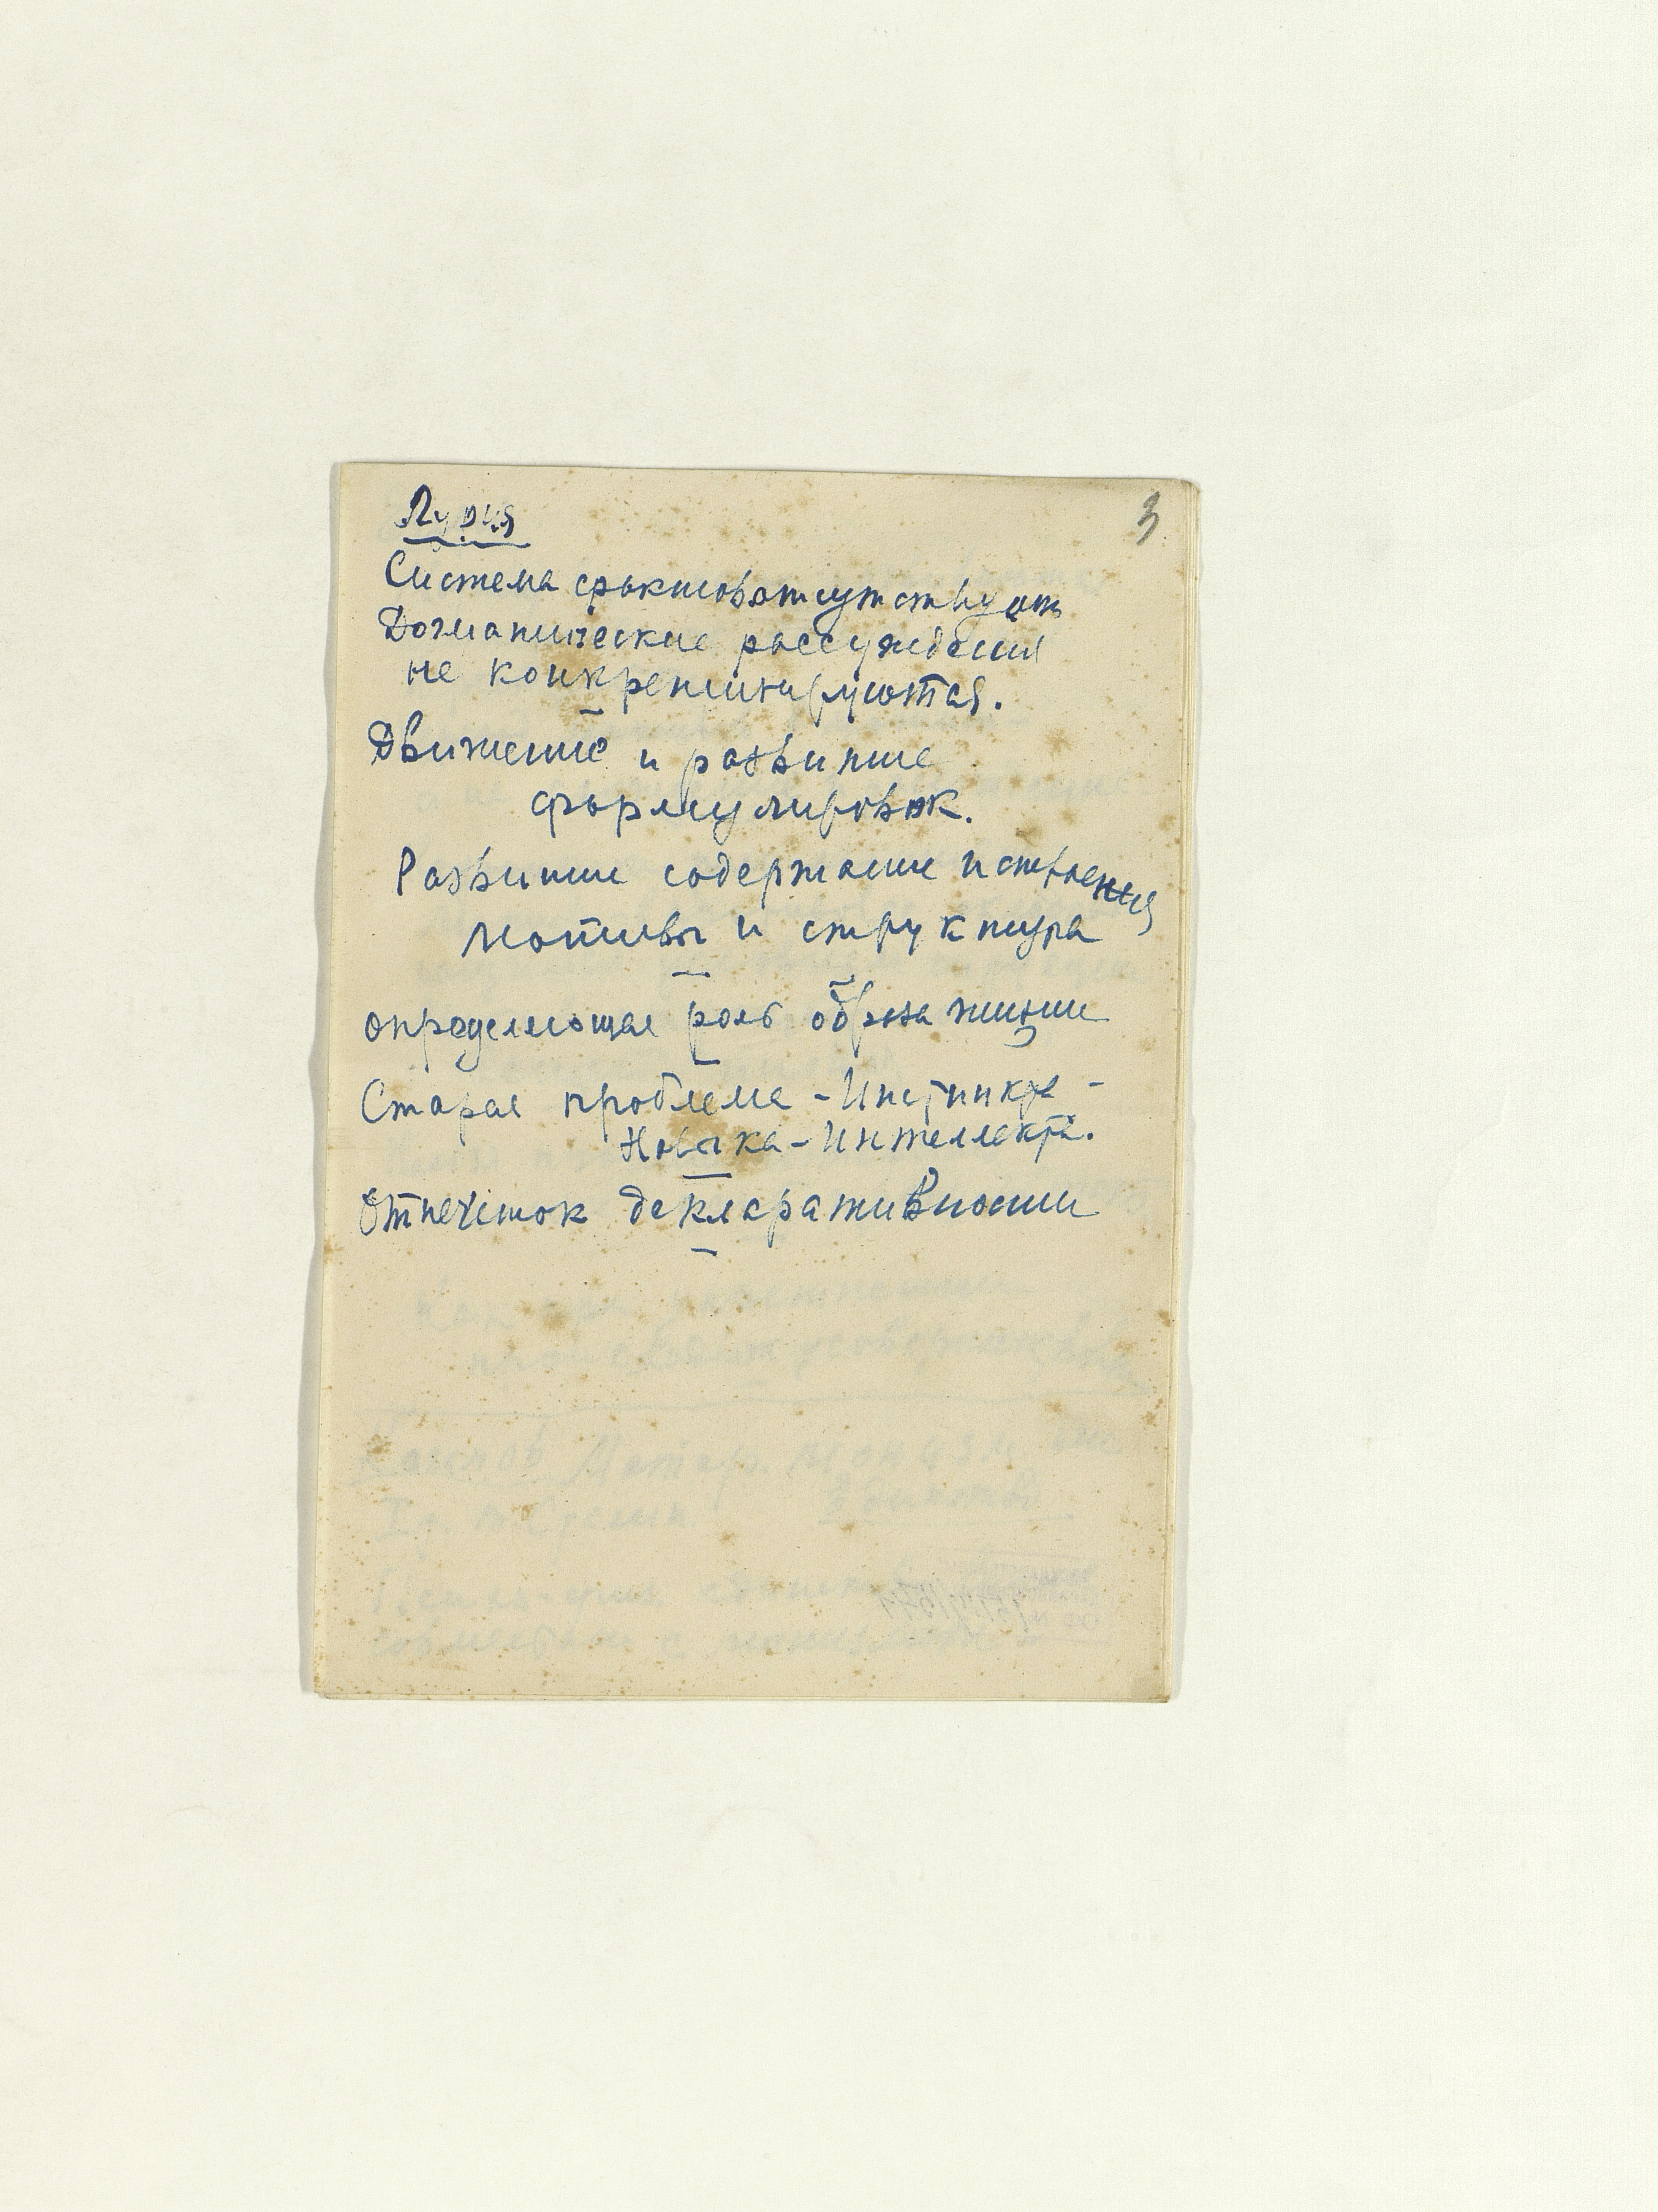 3
Лурия
Система фактов отсутствует
Догматические рассуждения
не конкретизируются.
Движение и развитие
формулировок.
Развитие содержание и строения
мотивы и структура
определяющая роль образа жизни
Старая проблема - Инстинкта -
Навыка - Интеллекта.
Отпечаток декларативности